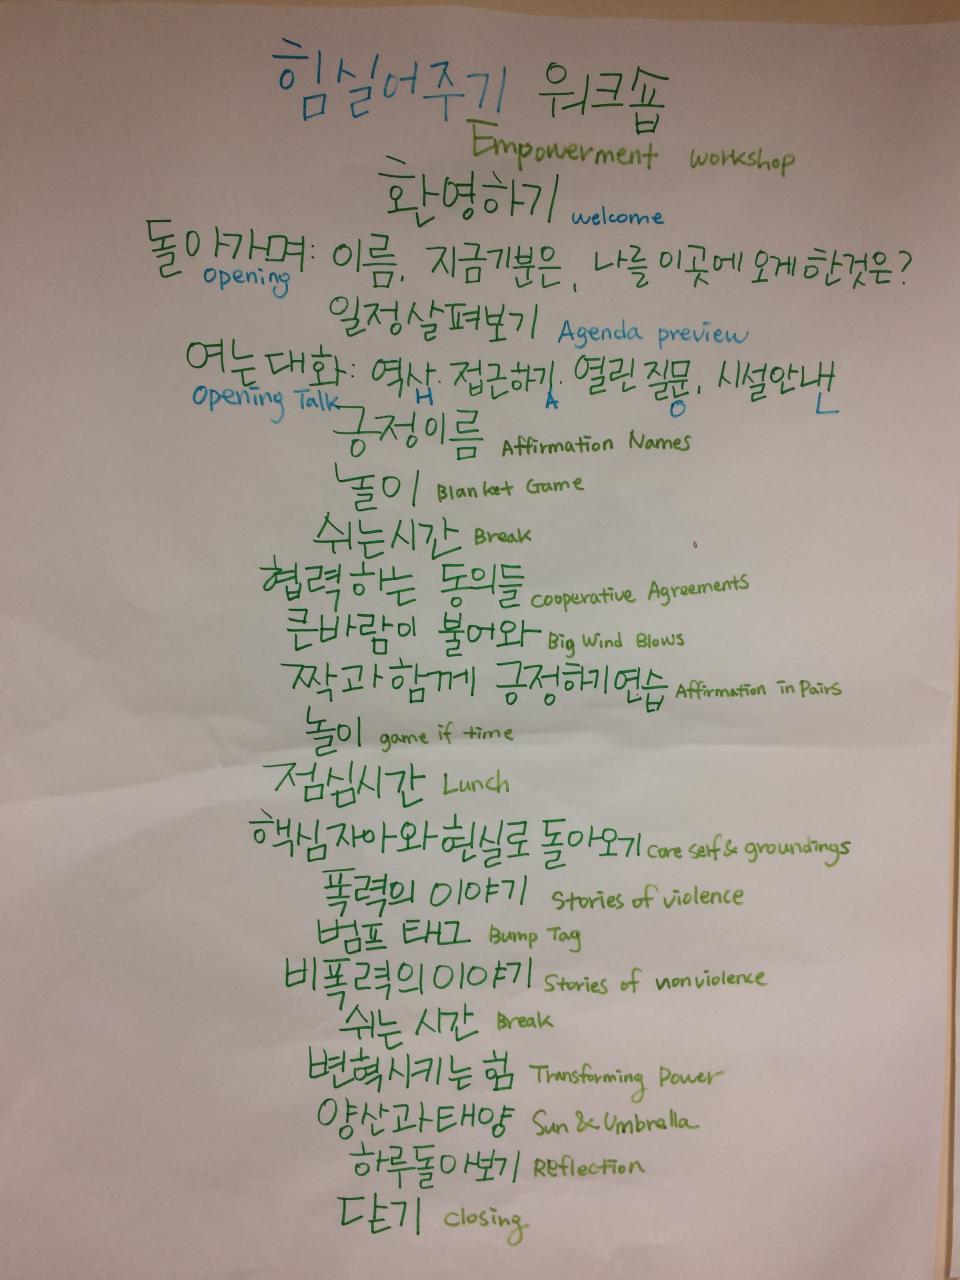 힘실어주기 워크숍
Empowerment workshop
환영하기 welcome
돌아가며: 이름, 지금기분은, 나를 이곳에 오게 한것은?
opening
일정살펴보기 Agenda preview
여는대화: 역사. 접근하기. 열린질문, 시설안내
opening Talk H A O L
긍정이름 Affirmation Names
놀이 Blanket Game
쉬는시간 Break
협력하는 동의들 cooperative Agreements
큰바람이 불어와 Big Wind Blows
짝과함께 긍정하기연습 Affirmation in Pairs
놀이 game if time
점심시간 Lunch
핵심자아와 현실로 돌아오기 core self & groundings
폭력의 이야기 Stories of violence
범프 태그 Bump Tag
비폭력의 이야기 Stories of nonviolence
쉬는 시간 Break
변혁시키는힘 Transforming Power
양산과태양 Sun & Umbrella
하루돌아보기 Reflection
닫기 closing